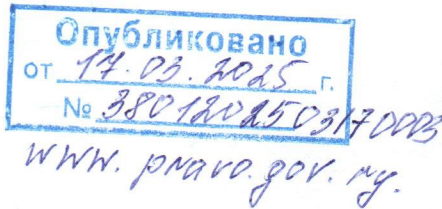 Опубликовано
от 17.03.2025 г.
№ 3801202503170003
www.pravo.gov.ru.